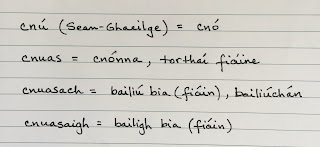 cnú (Sean-Ghaeilge) = cnó
cnuas = cnónna, torthaí fiáine
cnuasach = bailiú bia (fiáin), bailiúchán
cnuasaigh = bailigh bia (fiáin)